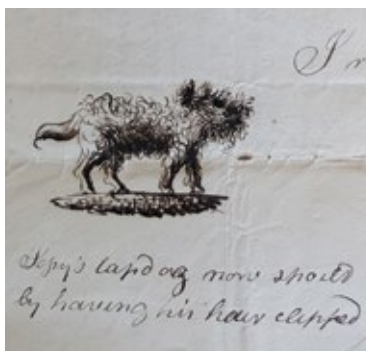 I
lapdog now spoilt
by having his hair clipped